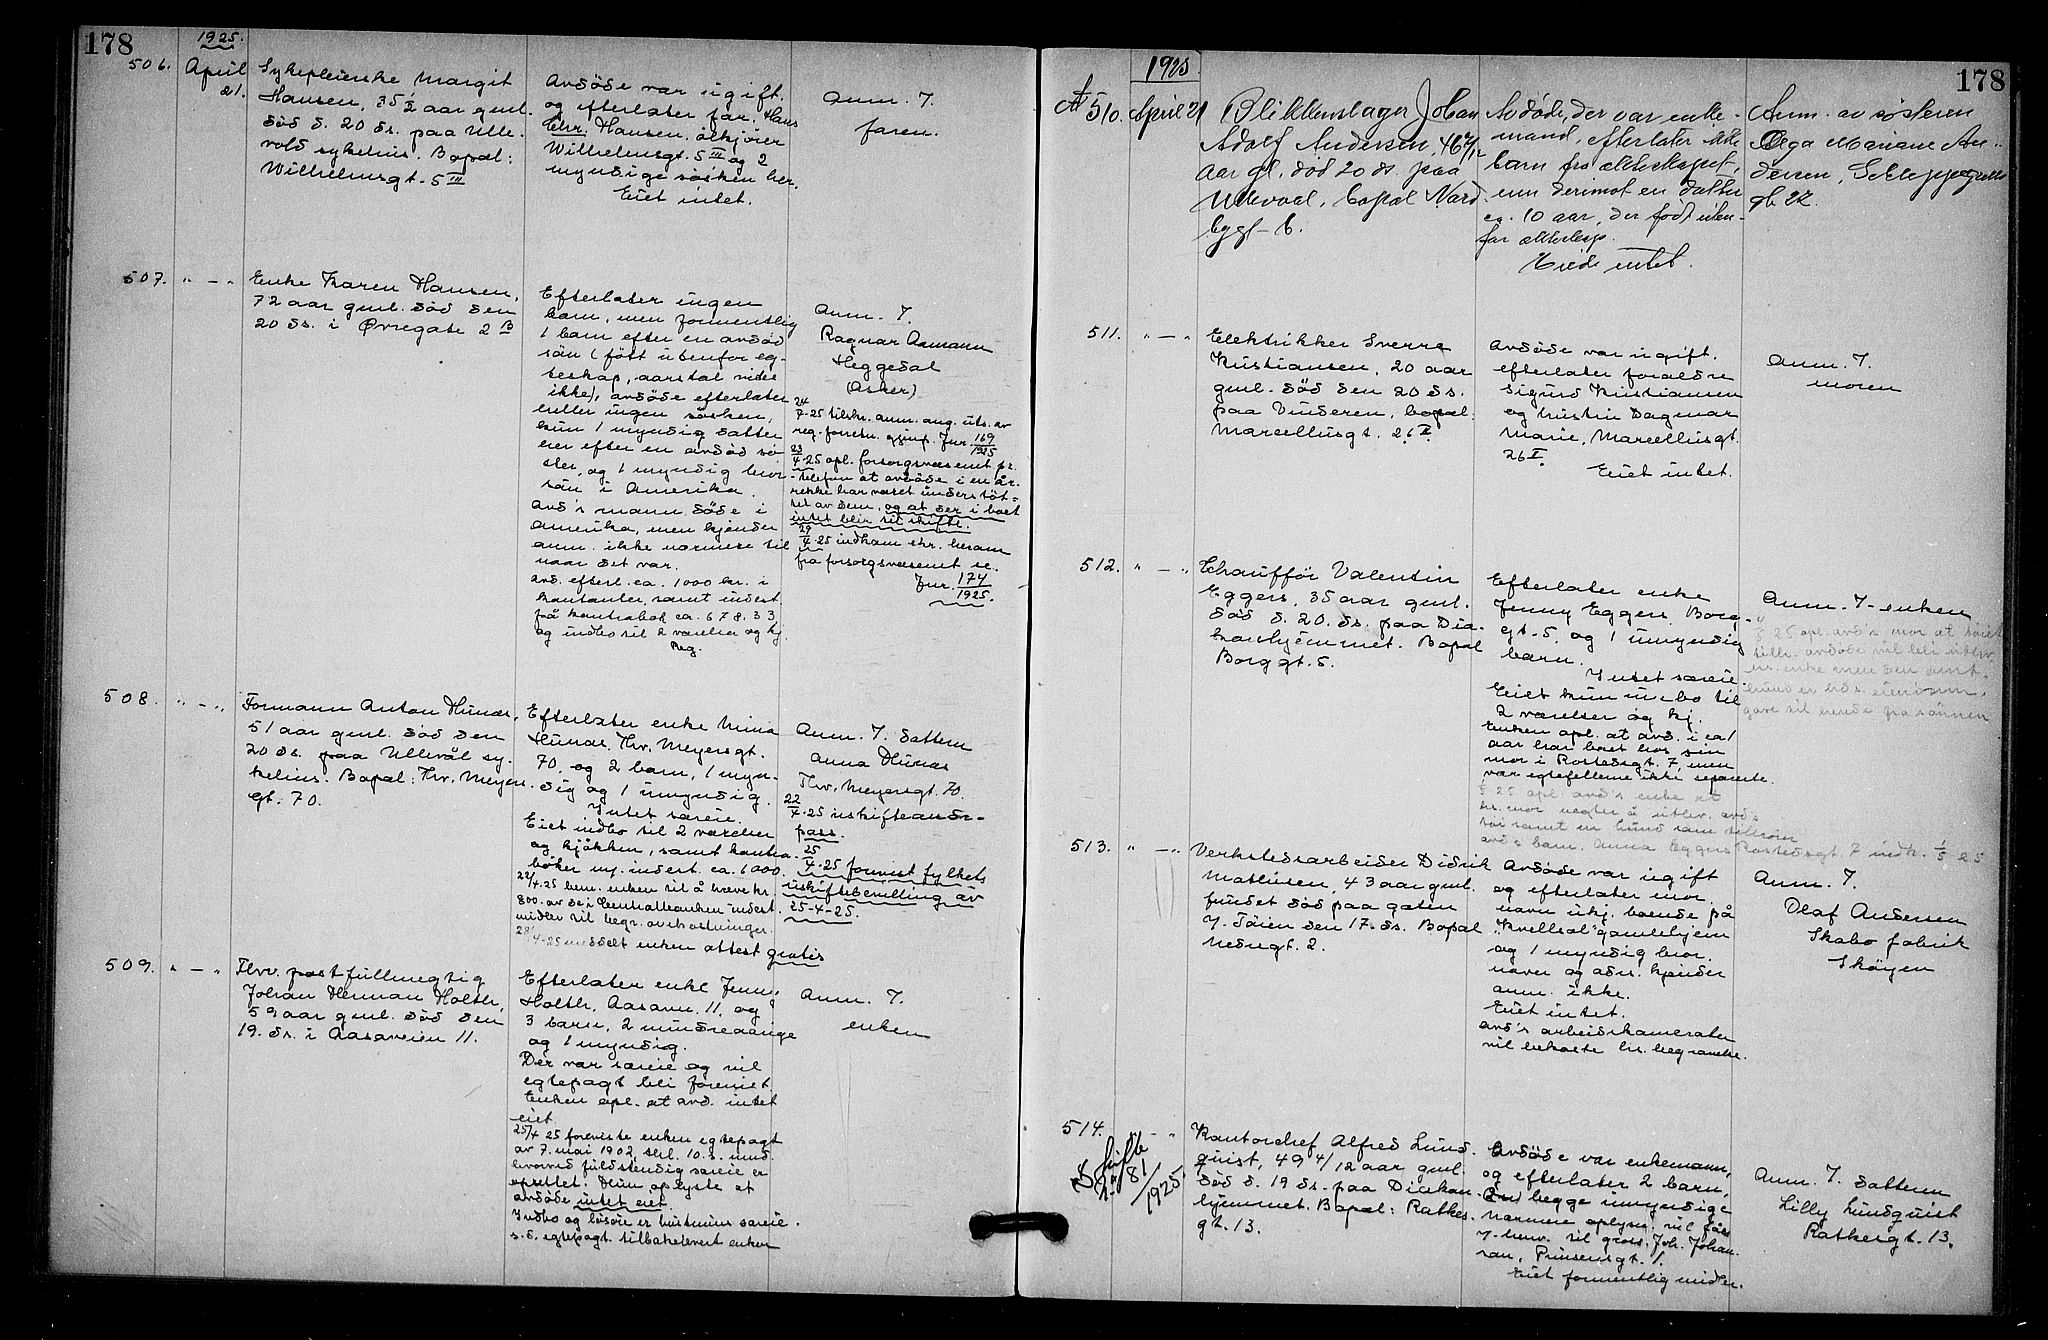 178
1925.
506.
April
21.
Sykepleierske Margit
Hansen, 35 aar gml.
død d. 20 ds. paa Ulle-
vold sykehus. Bopæl:
Wilhelmsgt. 5 III
Avdøde var ugift.
og efterlater far, Hans
Chr. Hansen, ølkjører
Wilhelmsgt. 5 III og 2
myndige søsken her.
Eiet intet.
Anm. 7.
faren.
507. " — "
Enke Karen Hansen,
72 aar gml. død den
20 ds. i Øvregate 2 B
Efterlater ingen
barn, men formentlig
1 barn efter en avdød
søn (født utenfor eg-
teskap, aarstal vides
ikke), avdøde efterlater
heller ingen søsken,
kun 1 myndig datter
her efter en avdød sø-
ster, og 1 myndig bror-
søn i Amerika.
Avd's mann døde i
Amerika, men kjender
anm. ikke nærmere til
naar det var.
Avd. efterl. ca. 1000 kr. i
kontanter, samt indest.
på bankbok ca. 678,33
og indbo til 2 værelser og kj.
Reg.
Anm. 7.
Ragnar Aamann
Heggedal
(Asker)
24
7-25 tilskr. anm. ang. uts. av
reg. forretn. gjenp. Jnr. 169/1925
23/4-25 opl. forsorgsvæsenet pr.
telefon at avdøde i en år-
rekke har været understøt-
tet av dem, og at der i boet
intet blir til skifte.
29/4-25 indkom skr. herom
fra forsorgsvæsenet se.
Jnr. 174/1925.
508. " — "
Formann Anton Hunæs,
51 aar gml. død den
20 ds. paa Ullevål sy-
kehus. Bopæl: Thv. Meyers
gt. 70.
Efterlater enke Mina
Hunæs, Thv. Meyersgt.
70, og 2 barn, 1 myn-
dig og 1 umyndig.
Intet særeie.
Eiet indbo til 2 værelser
og kjøkken, samt bank-
bøker m. indest. ca. 1000.
22/4-25 bem. enken til å hæve kr.
800. av de i Centralbanken indest.
midler til begr. omkostninger.
28/4-25 meddelt enken attest gratis
Anm. 7. datteren
Anna Hunæs
Thv. Meyersgt. 70.
22/4-25 uskifteandr-
pass.
25
4-25 forevist fylkets
uskiftebevilling av
25-4-25.
509. " — "
Fhv. postfullmegtig
Johan Herman Holth,
59 aar gml. død den
19. ds. i Aasaveien 11.
Efterlater enke Jenny
Holth, Aasavn. 11, og
3 barn, 2 mindreaarige
og 1 myndig.
Der var særeie og vil
egtepagt bli forevist.
Enken opl. at avd. intet
eiet.
25/4 25 foreviste enken egtepagt
av 7. mai 1902, tgl. 10. s. mnd.
hvorved fuldstendig særeie er
oprettet. Hun oplyste at
avdøde intet eiet.
Indbo og løsøre er hustruens særeie.
s. d. egtepagt tilbakelevert enken
Anm. 7.
enken
178
1925
№ 510. April 21
Blikkenslager Johan
Adolf Andersen, 46 9/12
aar gl. død 20 ds. paa
Ulleval, bopæl Nord-
bygt. 6.
Avdøde, der var enke-
mand, efterlater ikke
barn fra ækteskapet,
men derimot en datter
ca. 10 aar, der født uten-
for ækteskap.
Eiede intet.
Anm. av søsteren
Olga Mariane An-
dersen, Schleppegrells
gt. 22.
511. " — "
Elektrikker Sverre
Kristiansen, 20 aar
gml. død den 20 ds.
paa Vinderen, bopæl:
Marcellusgt. 26 I.
Avdøde var ugift.
efterlater foreldre
Sigurd Kristiansen
og hustru Dagmar
Marie, Marcellusgt.
26 I.
Eiet intet.
Anm. 7.
moren
512. " — "
Chauffør Valentin
Eggers, 35 aar gml.
død d. 20. ds. paa Dia-
konhjemmet. Bopæl
Borggt. 5.
Efterlater enke
Jenny Eggers, Borg-
gt. 5. og 1 umyndig
barn.
Intet særeie.
Eiet kun indbo til
2 værelser og kj.
Enken opl. at avd. i ca 1
aar har boet hos sin
mor i Rostedsgt. 7, men
var egtefellerne ikke separerte.
5 25 opl. avd's enke at
hs. mor negter å utlev. avd's
tøi samt en hund som tilhører
avd's barn. Anna Eggers Rostedsgt. 7 indk. 1/5 25
Anm. 7. enken
5 25 opl. avd's mor at tøiet
tilh. avdøde vil bli utlev.
hs. enke men den omt.
hund er hds. eiendom,
gave til hende fra sønnen
513. " — "
Verkstedsarbeider Didrik
Mathisen, 43 aar gml.
fundet død paa gaten
v. Tøien den 17. ds. Bopæl
Nedregt. 2.
Avdøde var ugift
og efterlater mor,
navn ukj. boende på
"Kvellsol" gamlehjem
og 1 myndig bror.
navn og adr. kjender
anm. ikke.
Eiet intet.
Avd's arbeidskamerater
vil bekoste hs. begravelse.
Anm. 7.
Olaf Andersen
Skabo fabrik
Skøyen
514. " — "
Skifte
81/1925.
Kontorchef Alfred Lund-
quist, 49 4/12 aar gml.
død d. 19 ds. paa Diakon-
hjemmet. Bopæl: Ratkes-
gt. 13.
Avdøde var enkemann,
og efterlater 2 barn,
begge umyndige
Nærmere oplysn. vil fåes
v. henv. til gross. Joh. Johan-
sen, Prinsensgt. 1.
Eiet formentlig midler.
Anm. 7. datteren
Lilly Lundquist
Ratkesgt. 13.